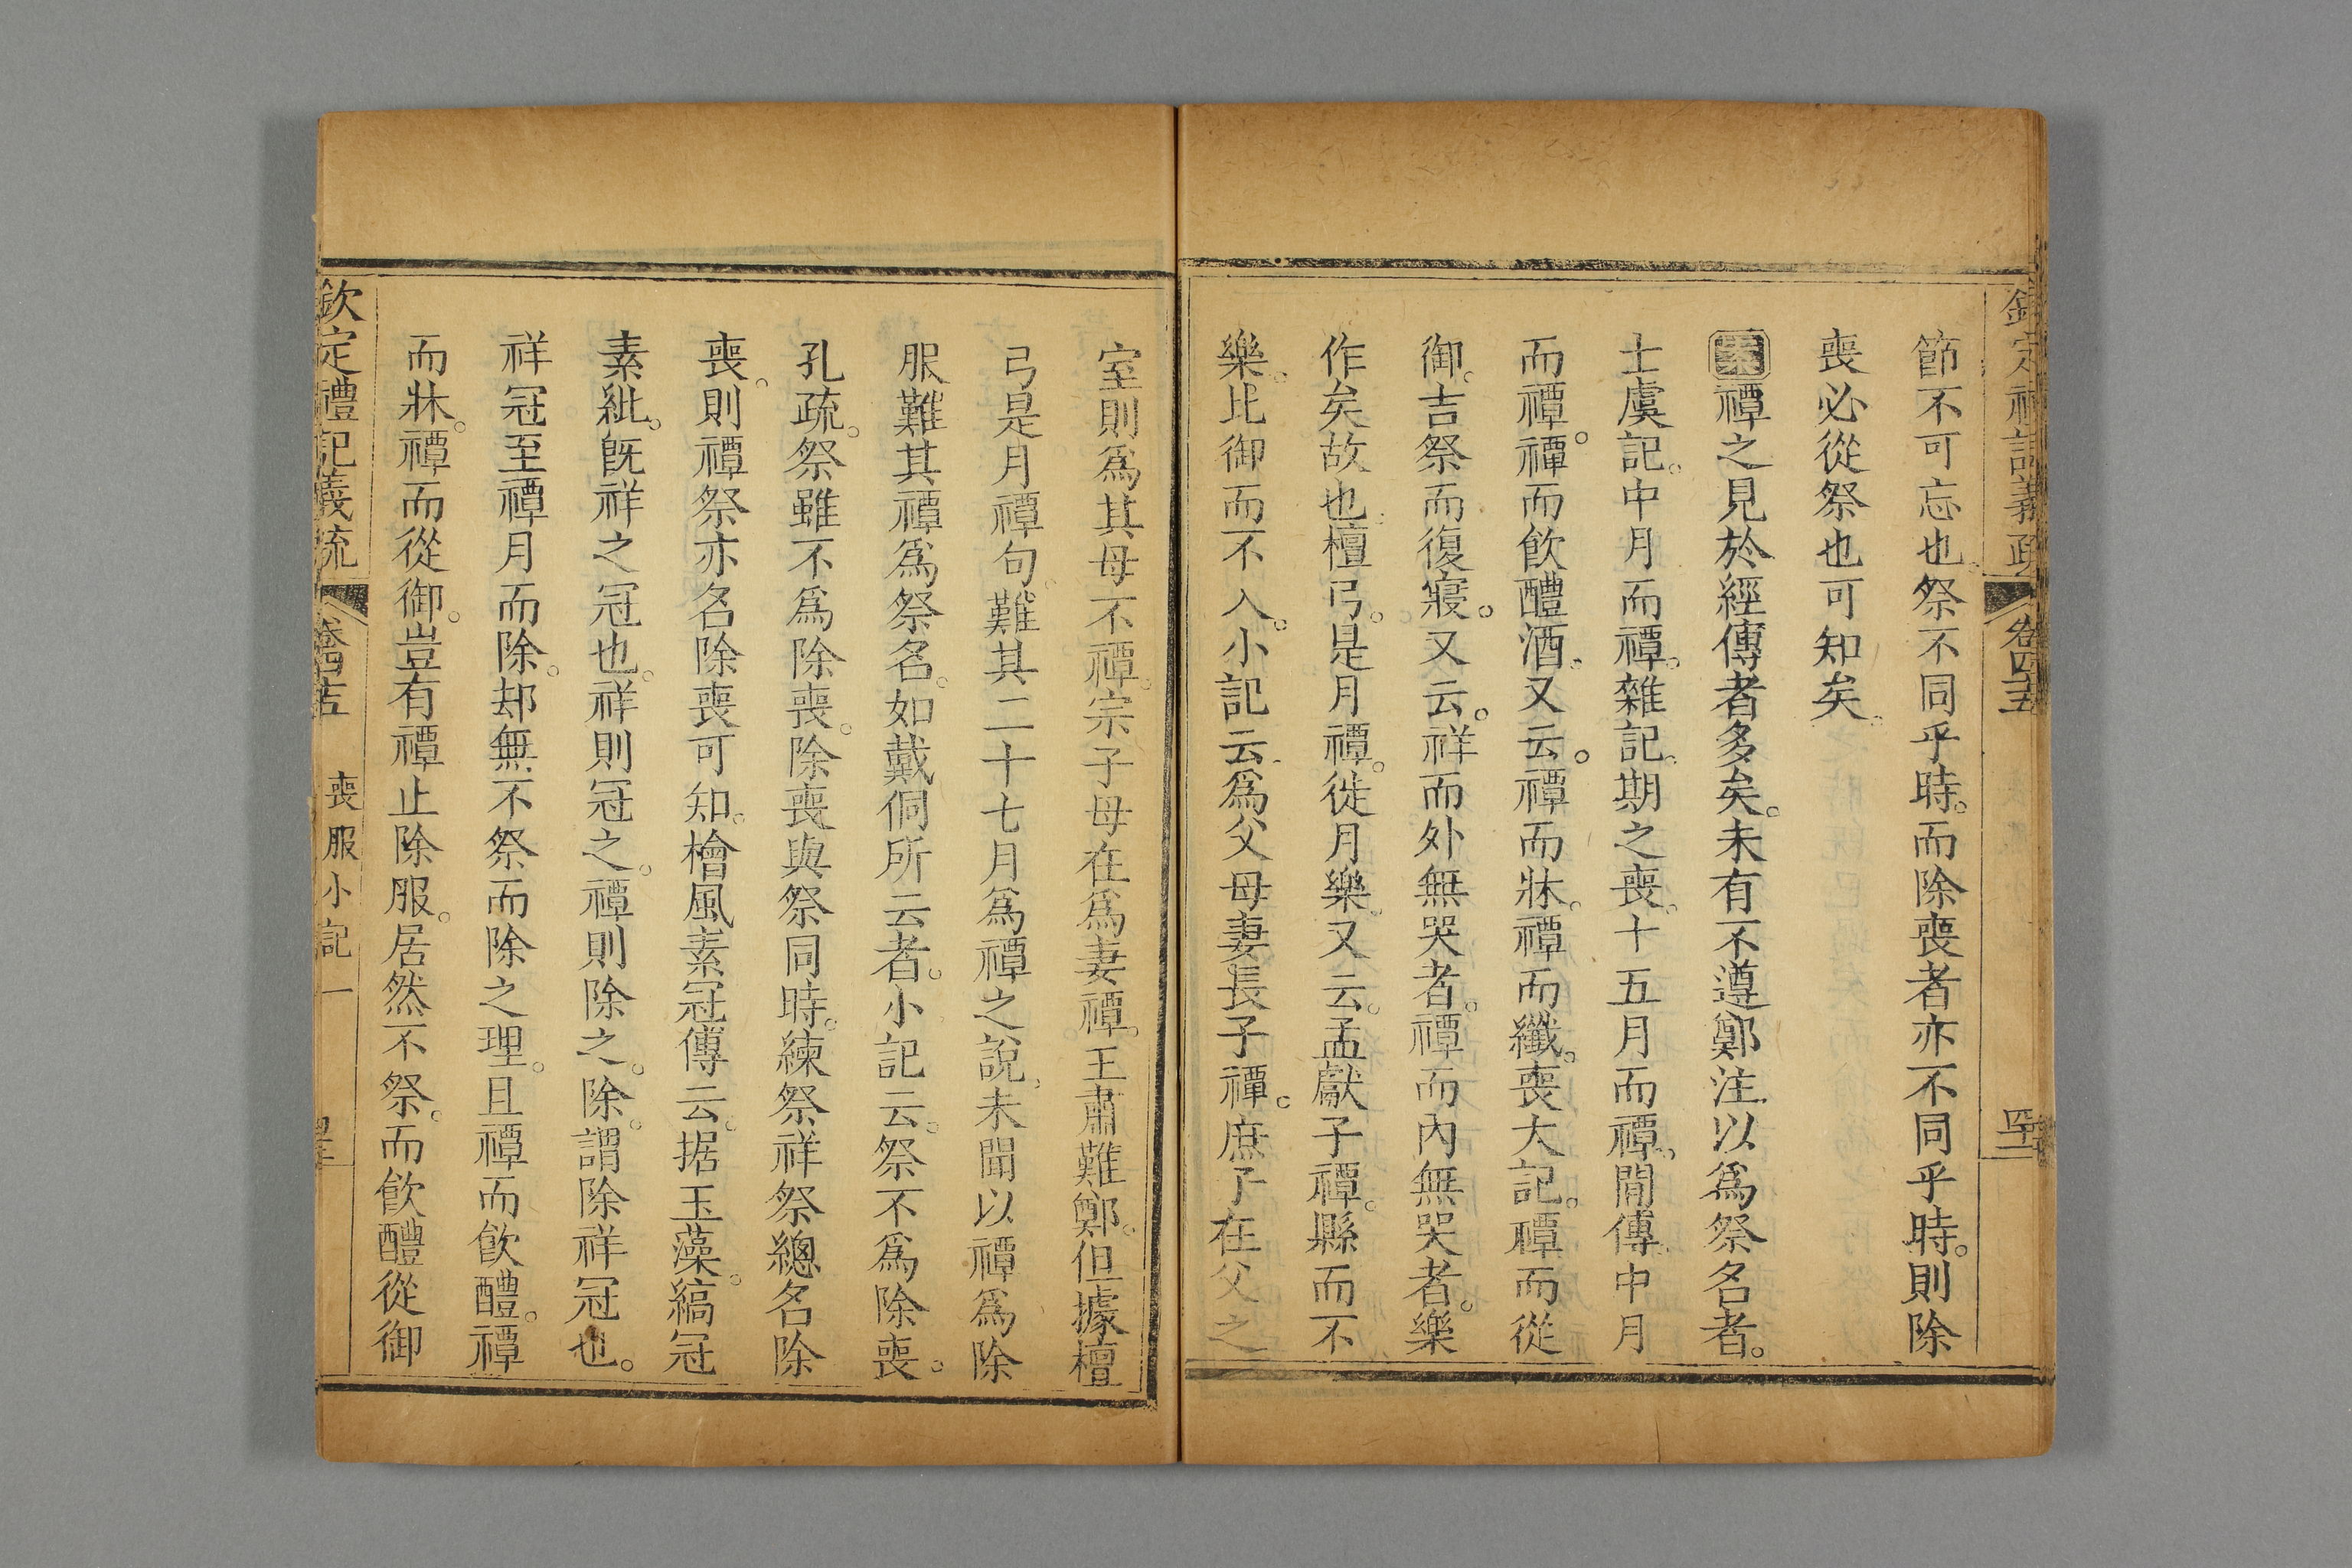 欽定禮記義疏 卷四十五
節不可忘也祭不同乎時。而除喪者亦不同乎時。則除
喪必從祭也可知矣。
案禫之見於經傳者多矣。未有不遵鄭注以爲祭名者。
士虞記。中月而禫。雜記。期之喪。十五月而禫。閒傳。中月
而禫。禫而飮醴酒。又云。禫而牀。禫而纖。喪大記。禫而從
御。吉祭而復寢。又云。祥而外無哭者。禫而內無哭者。樂
作矣故也。檀弓。是月禫。徙月樂。又云。孟獻子禫。縣而不
樂。比御而不入。小記云。爲父母妻長子禫。庶子在父之
室則爲其母不禫。宗子母在爲妻禫。王肅難鄭。但據檀
弓是月禫句。難其二十七月爲禫之說。未聞以禫爲除
服難其禫爲祭名。如戴侗所云者。小記云。祭不爲除喪。
孔疏。祭雖不爲除喪。除喪與祭同時。練祭祥祭總名除
喪。則禫祭亦名除喪可知。檜風素冠傳云。据玉藻。縞冠
素紕。旣祥之冠也。祥則冠之。禫則除之。除。謂除祥冠也。
祥冠至禫月而除。却無不祭而除之理。且禫而飮醴。禫
而牀。禫而從御。豈有禫止除服。居然不祭。而飮醴從御
欽定禮記義疏
喪服小記一